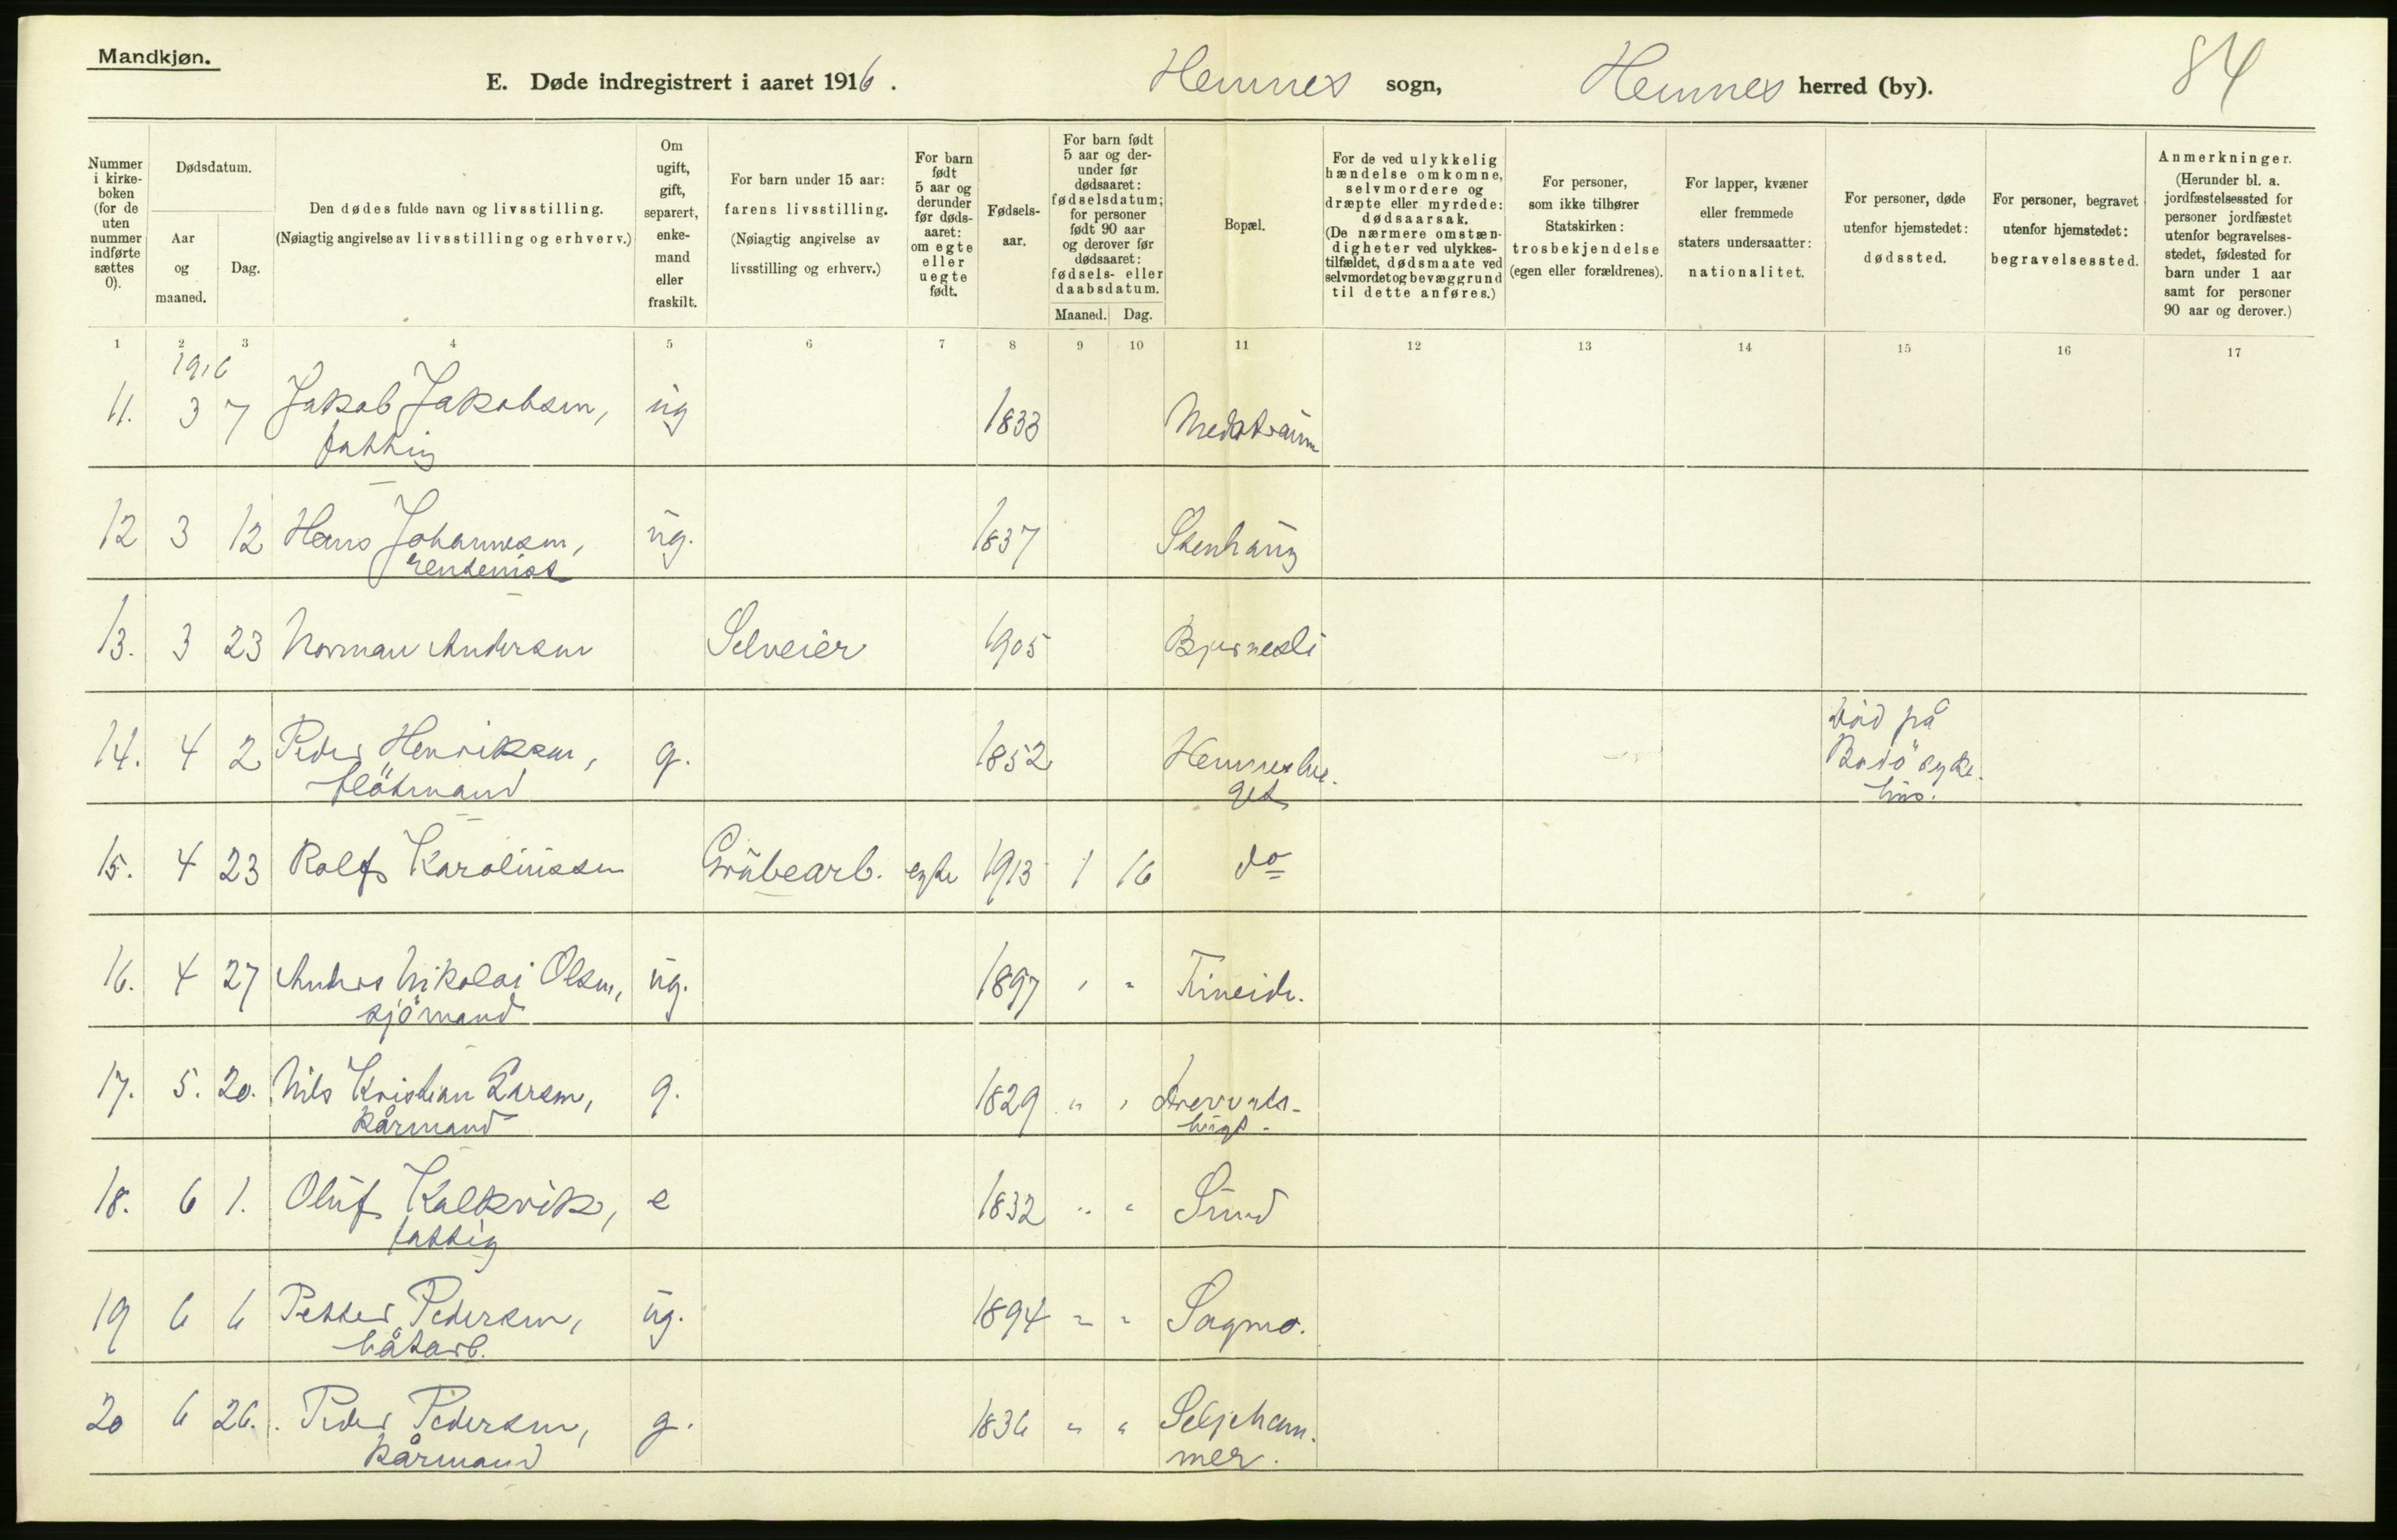 Mandkjøn.
E. Døde indregistrert i aaret 1916. Hemnes sogn, Hemnes herred (by). 84
Nummer i kirkeboken (for de uten nummer indførte sættes 0).
Dødsdatum.
Aar og maaned.
Dag.
Den dødes fulde navn og livsstilling.
(Nøiagtig angivelse av livsstilling og erhverv.)
Om ugift, gift, separert, enkemand eller fraskilt.
For barn under 15 aar: farens livsstilling.
(Nøiagtig angivelse av livsstilling og erhverv.)
For barn født 5 aar og derunder før dødsaaret: om egte eller uegte født.
Fødselsaar.
For barn født 5 aar og derunder før dødsaaret: fødselsdatum; for personer født 90 aar og derover før dødsaaret: fødsels- eller daabsdatum.
Maaned. Dag.
Bopæl.
For de ved ulykkelig hændelse omkomne, selvmordere og dræpte eller myrdede: dødsaarsak.
(De nærmere omstændigheter ved ulykkestilfældet, dødsmaate ved selvmordet og bevæggrund til dette anføres.)
For personer, som ikke tilhører Statskirken: trosbekjendelse (egen eller forældrenes).
For lapper, kvæner eller fremmede staters undersaatter: nationalitet.
For personer, døde utenfor hjemstedet: dødssted.
For personer, begravet utenfor hjemstedet: begravelsessted.
Anmerkninger.
(Herunder bl. a. jordfæstelsessted for personer jordfæstet utenfor begravelsesstedet, fødested for barn under 1 aar samt for personer 90 aar og derover.)
1 2 3 4 5 6 7 8 9 10 11 12 13 14 15 16 17
1916
11. 3 7 Jakob Jakobsen, ug 1833
fattig
12 3 12 Hans Johannesen, ug. 1837 Stenhaug
rentenist
13. 3 23 Norman Andersen Selveier 1905 Bjørnesli
14. 4 2 Peder Henriksen, g. 1852 Hemnesber. Död på
flötmand get Bodö syke.
hus.
15. 4 23 Rolf Karoliussen Grubearb. egte 1913 1 16 do
16. 4 27 Anders Nikolai Olsen, ug. 1897 " " Fineide.
sjömand
17. 5. 20. Nils Kristian Larsen, g. 1829 " "
kårmand
18. 6 1. Oluf Kalkvik, e 1832 " " Sund
fattig
19 6 6 Petter Pedersen, ug. 1894 " " Sagmo.
båtarb.
20 6 26. Peder Pedersen, g. 1836 " " Seljeham.
kårmand mer.